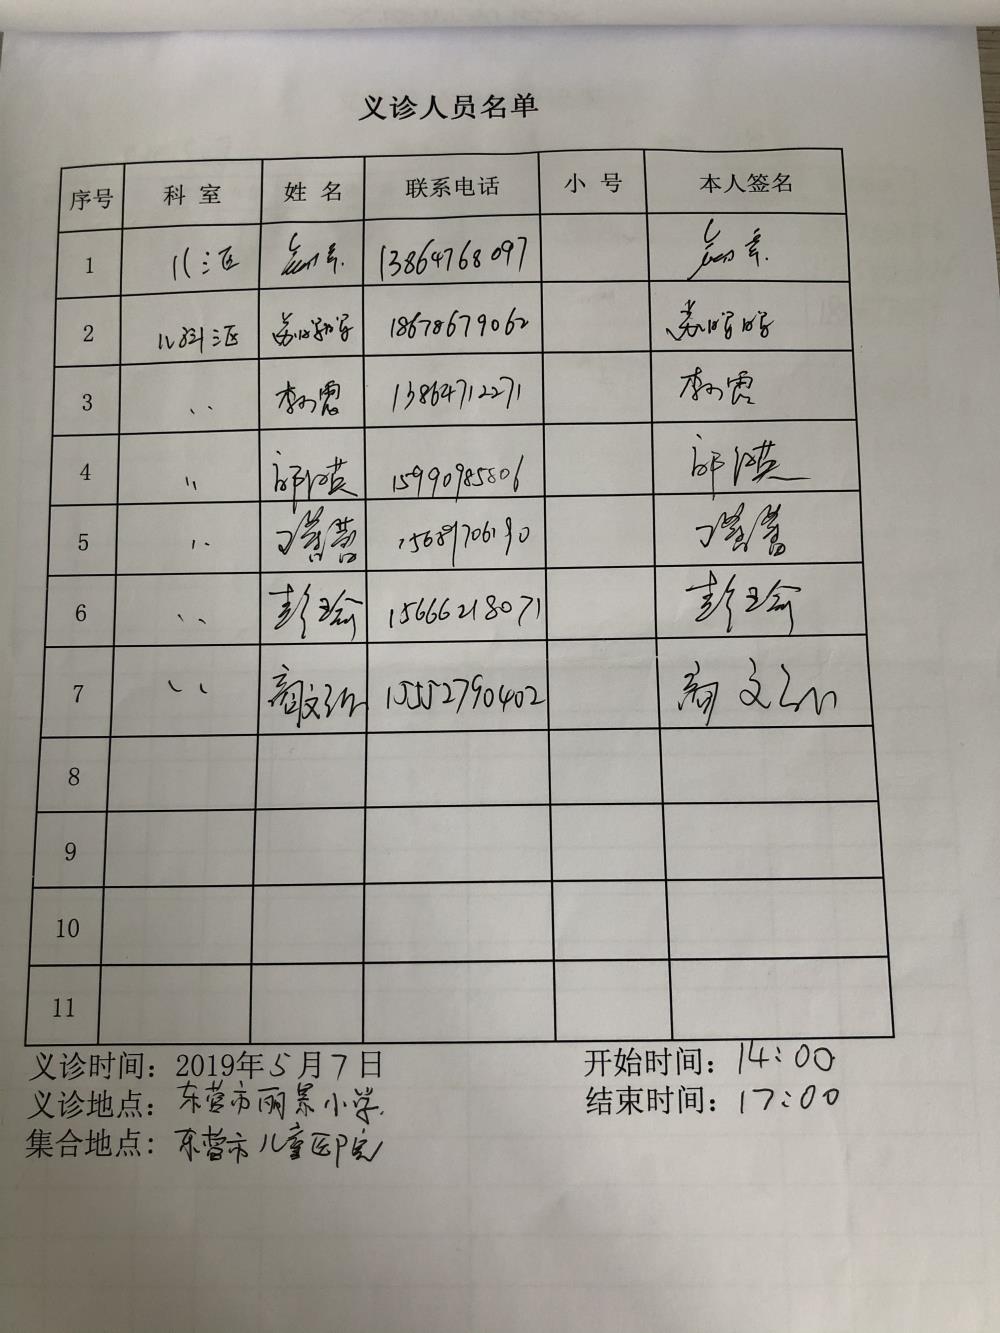 义诊人员名单
序号 科室 姓名 联系电话 小号 本人签名
1 儿三区 13864768097
2 儿科三区 18678679062
3 〃 13864712271
4 〃 15990985806
5 〃 丁蕾蕾 丁蕾蕾
6 〃 彭玉俞 15666218071 彭玉俞
7 〃 15552790402
8
9
10
11
义诊时间：2019年5月7日 开始时间：14:00
义诊地点：东营市丽景小学. 结束时间：17:00
集合地点：东营市儿童医院